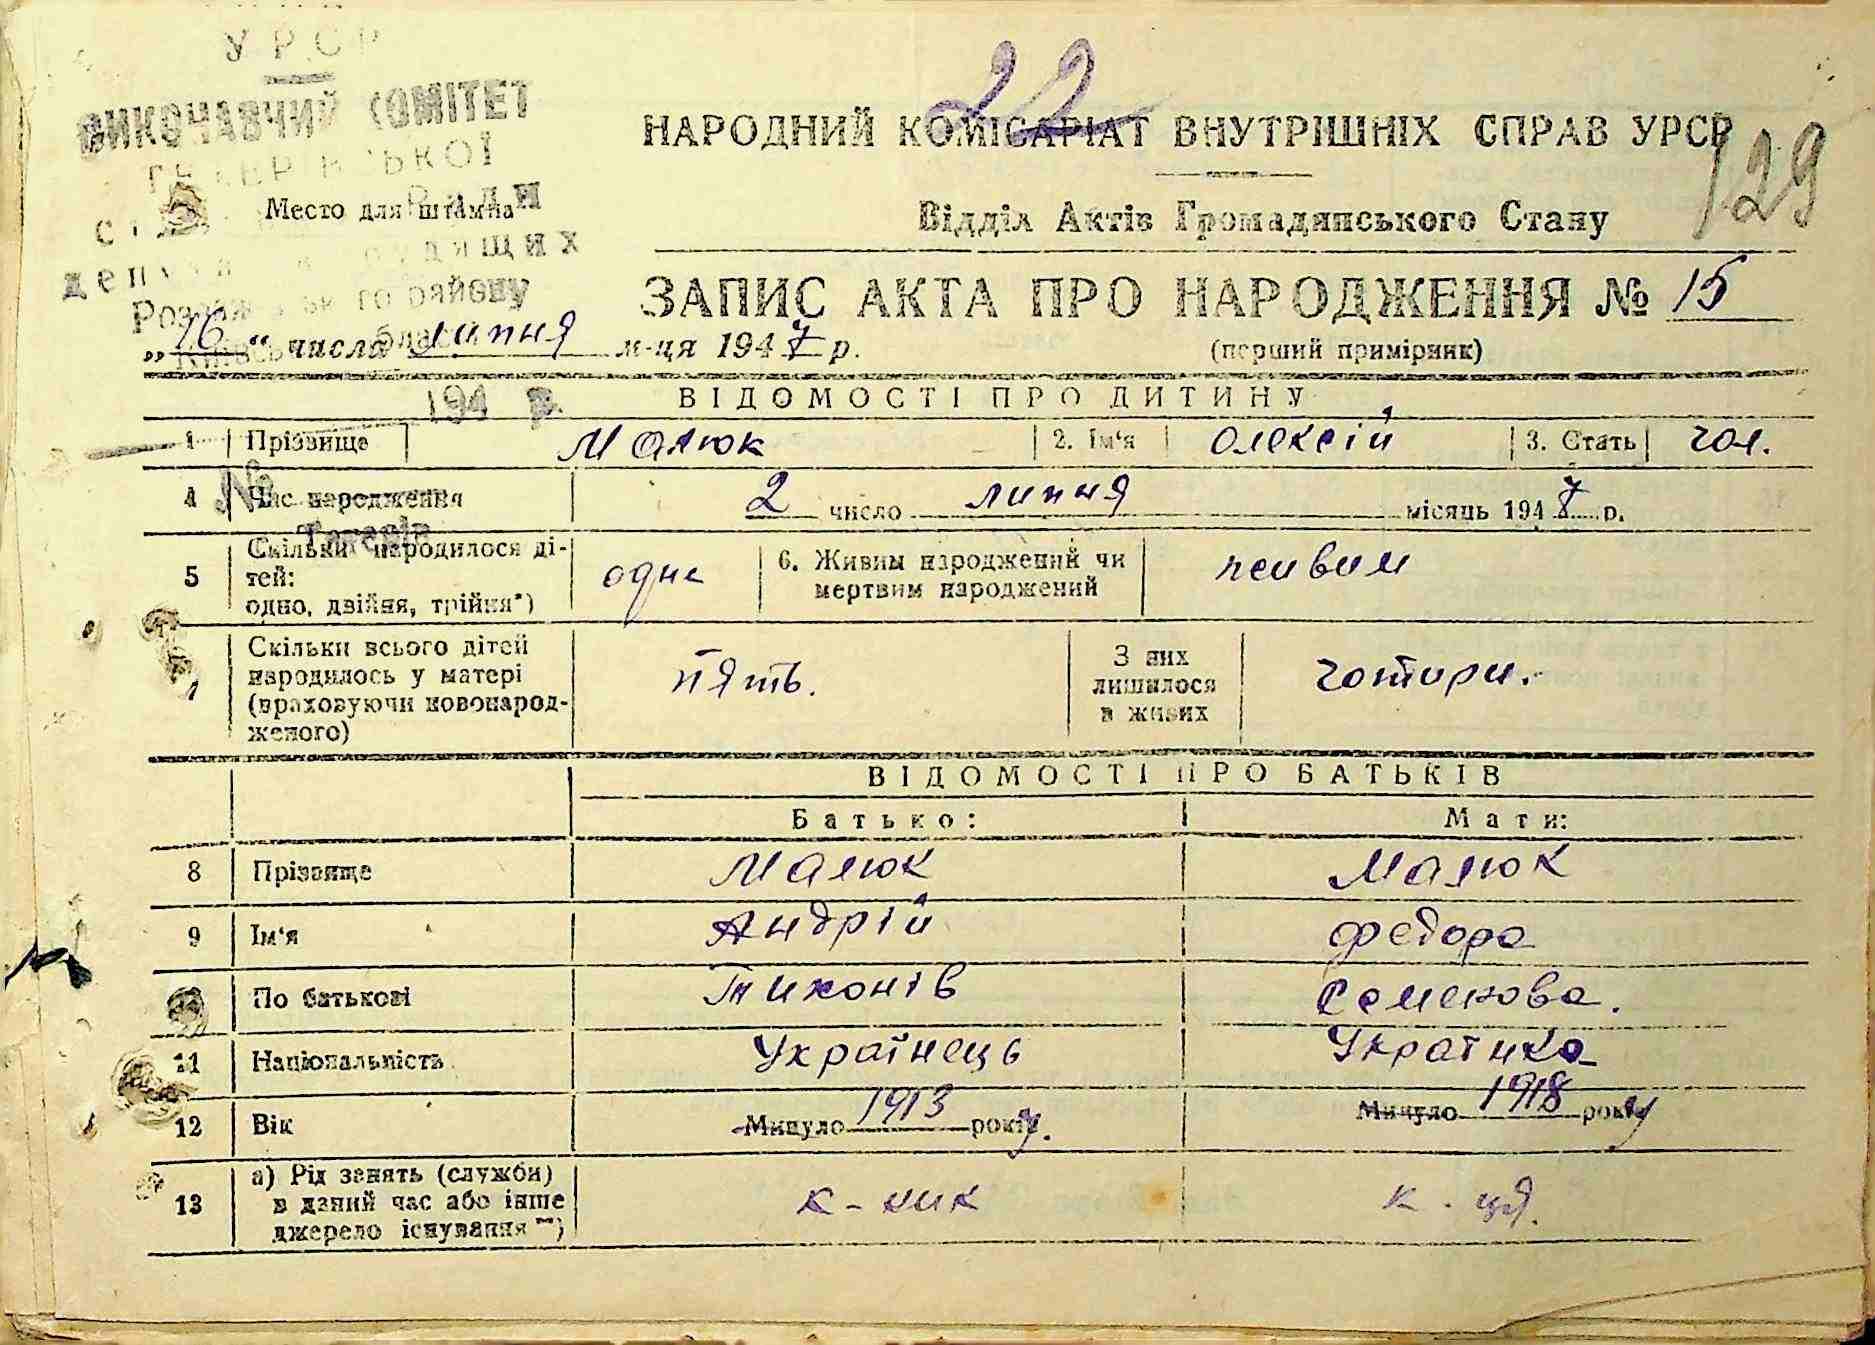 У Р С Р
ВИКОНАВЧИЙ КОМІТЕТ
Место для штампа
22
НАРОДНИЙ КОМІСАРІАТ ВНУТРІШНІХ СПРАВ УРСР
129
Відділ Актів Громадянського Стану
ЗАПИС АКТА ПРО НАРОДЖЕННЯ № 15
(перший примірник)
„16“ числа липня м-ця 1947 р.
194 р.
ВІДОМОСТІ ПРО ДИТИНУ
1 Прізвище Малюк 2. Ім'я Олексій 3. Стать чол.
№
4 Час народження 2 число липня місяць 1947 р.
5 Скільки народилося ді-
тей:
одно, двійня, трійня*) одне 6. Живим народжений чи
мертвим народжений живим
7 Скільки всього дітей
народилось у матері
(враховуючи новонарод-
женого) пять. З них
лишилося
в живих чотири.
ВІДОМОСТІ ПРО БАТЬКІВ
Батько: Мати:
8 Прізвище Малюк Малюк
9 Ім'я Андрій Федора
По батькові Тихонів Семенова.
11 Національність Українець Українка
12 Вік Минуло 1913 років Минуло 1918 року
13 а) Рід занять (служби)
в даний час або інше
джерело існування **) к-ник к-ця.